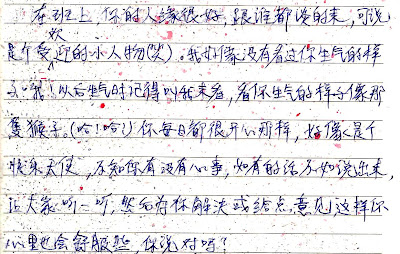 在班上,你的人缘很好,跟谁都谈的来,可说
是个受欢迎的小人物(笑)。我好像没有看过你生气的样
子哦!以后生气时记得叫我来看,看你生气的样子像那
隻猴子。(哈!哈!)你每日都很开心那样,好像是个
快乐天使,不知你有没有心事,如有的话不如说出来,
让大家听一听,然后为你解决或给点意见,这样你
心里也会舒服些,你说对吗?